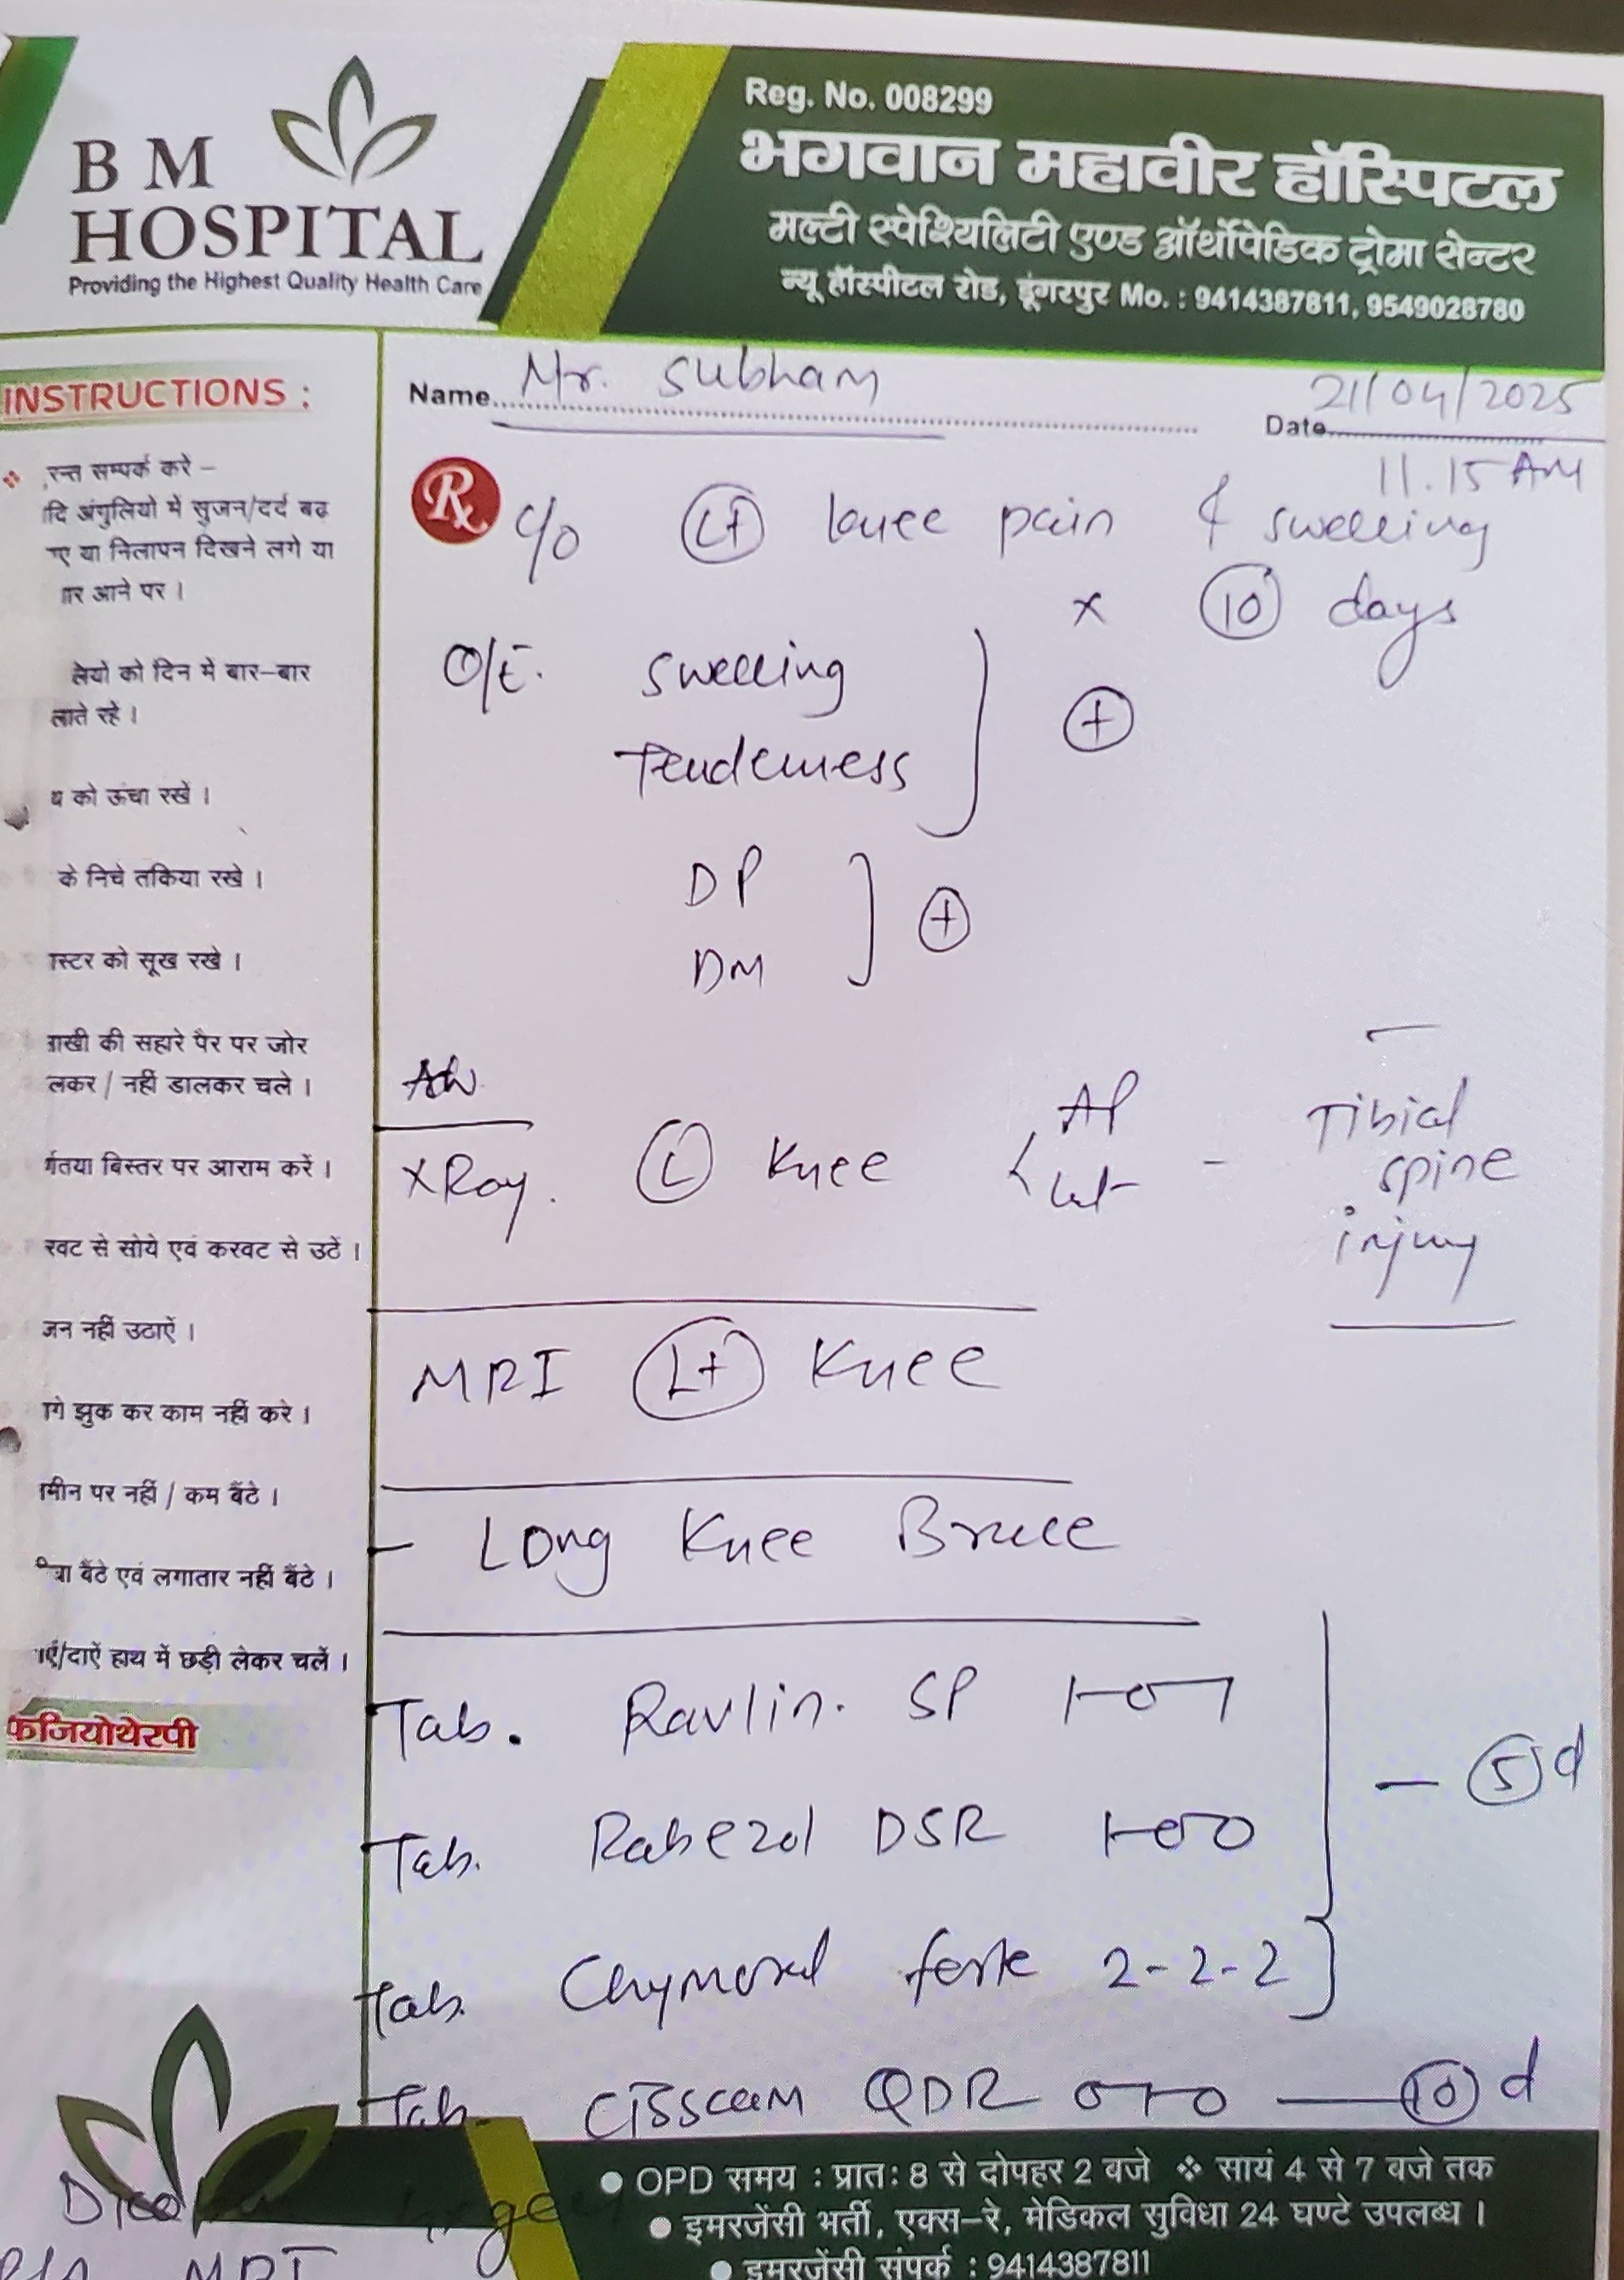 B M
HOSPITAL
Providing the Highest Quality Health Care
Reg. No. 008299
भगवान महावीर हॉस्पिटल
मल्टी स्पेश्यिलिटी एण्ड ऑर्थोपेडिक ट्रोमा सेन्टर
न्यू हॉस्पीटल रोड, डूंगरपुर Mo. : 9414387811, 9549028780
Name Mr. Subham
Date 21/04/2025
11.15 AM
Rx
c/o Lt knee pain & swelling
x 10 days
O/E. swelling
Tenderness
+
DP
DM
+
XRay. L Knee AP
Lat - Tibial
spine
injury
MRI Lt Knee
- Long Knee Brace
Tab. Ravlin. SP 1-0-1
Tab. Rabezol DSR 1-0-0
- 5 d
Tab. Chymoral forte 2-2-2
Tab. QDR 0-1-0 — 10 d
MRI
INSTRUCTIONS :
रन्त सम्पर्क करे –
दि अंगुलियो में सुजन/दर्द बढ़
ए या निलापन दिखने लगे या
ार आने पर ।
लियो को दिन मे बार-बार
लाते रहे ।
थ को ऊंचा रखें ।
के निचे तकिया रखे ।
ास्टर को सूख रखे ।
ाखी की सहारे पैर पर जोर
लकर / नहीं डालकर चले ।
र्णतया बिस्तर पर आराम करें ।
रवट से सोये एवं करवट से उटें ।
जन नहीं उठाऐं ।
ागे झुक कर काम नहीं करे ।
मीन पर नहीं / कम बैंटे ।
बैंटे एवं लगातार नहीं बैंटे ।
/दाऐं हाथ में छड़ी लेकर चलें ।
फिजियोथेरपी
● OPD समय : प्रातः 8 से दोपहर 2 बजे ❖ सायं 4 से 7 बजे तक
● इमरजेंसी भर्ती, एक्स-रे, मेडिकल सुविधा 24 घण्टे उपलब्ध ।
● इमरजेंसी संपर्क : 9414387811